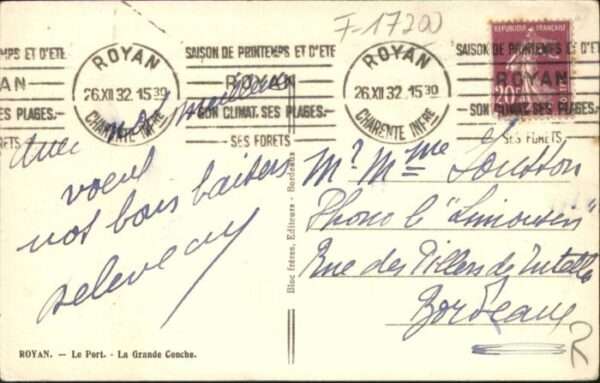 F-17200
MPS ET D'ETE
ROYAN
SAISON DE PRINTEMPS ET D'ETE
ROYAN
SAISON DE PRINTEMPS ET D'ETE
AN
26.XII 32.15 30
ROYAN
26.XII 32.15 30
ROYAN
20c
PLAGES.-
CHARENTE INFRE
SON CLIMAT.SES PLAGES.-
CHARENTE INFRE
SON CLIMAT.SES PLAGES.-
RETS
SES FORETS
SES FORETS
Avec nos meilleurs
voeux
nos bons baisers
Mr Mme
Phono le "Limousin"
Rue des Piliers de Tutelle
Bordeaux
Bloc frères, Editeurs - Bordeaux
ROYAN. - Le Port. - La Grande Conche.